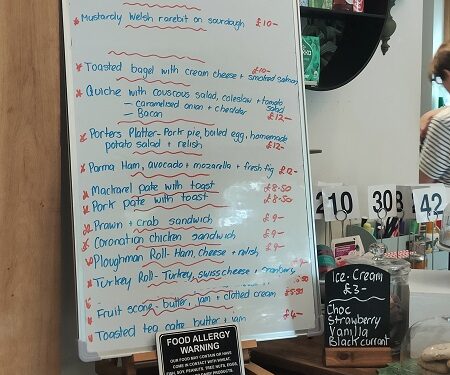 Mustardy Welsh rarebit on sourdough £10-
Toasted bagel with cream cheese + smoked salmon £10-
Quiche with couscous salad, coleslaw + tomato salad
- caramelised onion + cheddar
- Bacon £12-
Porters Platter- Pork pie, boiled egg, homemade
potato salad + relish £12-
Parma Ham, avocado + mozarella + fresh fig £12-
Mackarel pate with toast £8-50
Pork pate with toast £8-50
Prawn + crab sandwich £9-
Coronation chicken sandwich £9-
Ploughman Roll- Ham, cheese + relish £9-
Turkey Roll- Turkey, swiss cheese + cranberry
Fruit scone- butter, jam + clotted cream £5.50
Toasted tea cake butter + jam £4-
FOOD ALLERGY
WARNING
OUR FOOD MAY CONTAIN OR HAVE
COME IN CONTACT WITH WHEAT,
210
308
42
Ice-Cream
£3-
Choc
Strawberry
Vanilla
Blackcurrant